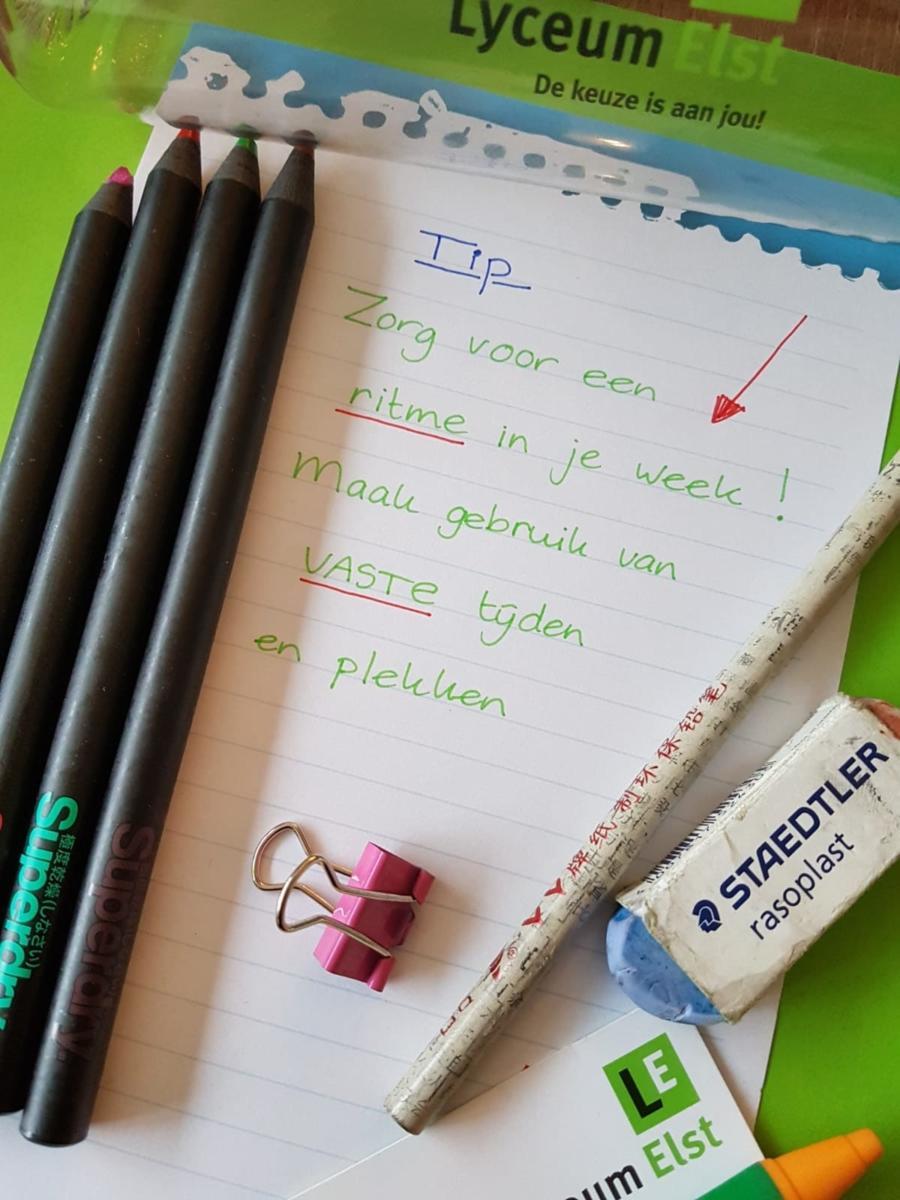 Lyceum Elst
De keuze is aan jou!
Tip
Zorg voor een
ritme in je week !
Maak gebruik van
VASTE tijden
en plekken
Superdry
極度乾燥(しなさい)
Superdry.
牌纸制环保铅笔
STAEDTLER
rasoplast
LE
eum Elst